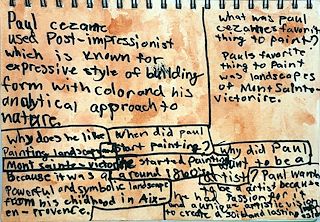 Paul cezanne
used Post-impressionist
which is known for
expressive style of building
form with color and his
analytical approach to
nature.
what was Paul
cezannes favorite
thing to paint?
Pauls favorite
thing to Paint
was landscapes
of Mont Sainte-
victoire.
Why does he like
Painting landscapes
Mont sainte-victoire
Because it was a
powerful and symbolic landscape
from his chidhood in Aix-
en-Provence.
When did Paul
start painting?
He started Painting
around 1860
why did Paul
want to be a
artist? Paul wanted
to be a artist because
he had Passion for
and a unique artistic vision
to create a solid and lasting